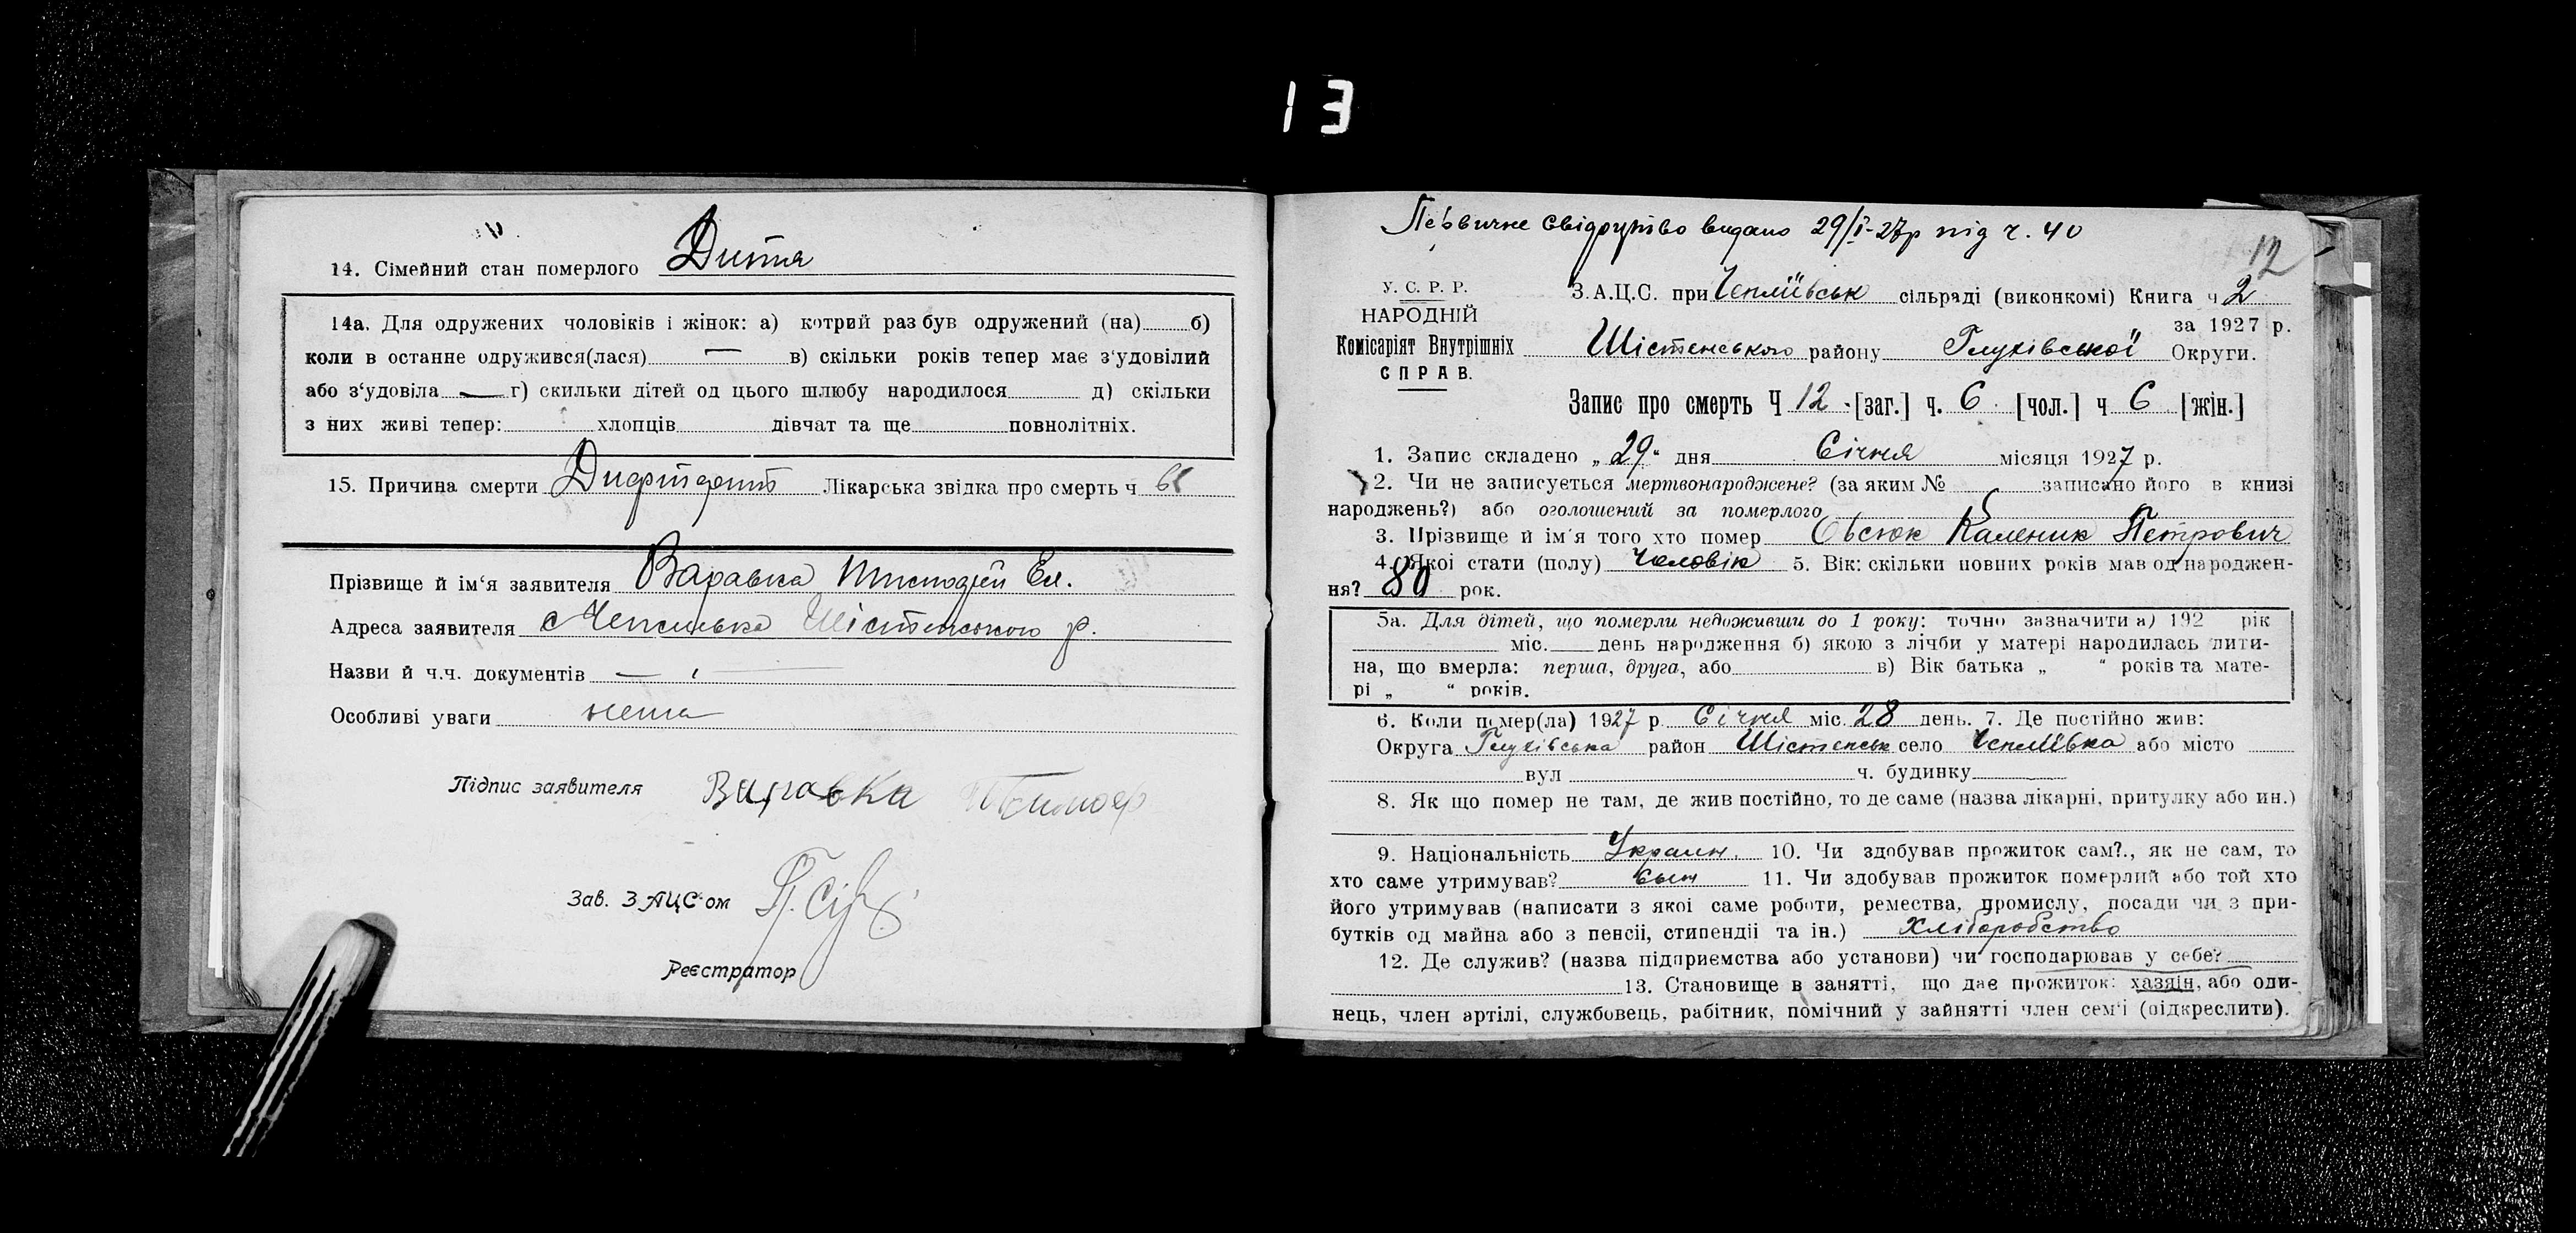 13
14. Сімейний стан померлого Дитя
14а. Для одружених чоловіків і жінок: а) котрий раз був одружений (на) б)
коли в останне одружився(лася) — в) скільки років тепер має з'удовілий
або з'удовіла — г) скильки дітей од цього шлюбу народилося д) скільки
з них живі тепер: хлопців дівчат та ще повнолітніх.
15. Причина смерти Дифтерит Лікарська звідка про смерть ч
Прізвище й ім'я заявителя Варавка Тимофей Ел.
Адреса заявителя с Чепліївка Шістенського р.
Назви й ч.ч. документів —
Особливі уваги нема
Підпис заявителя Варавка Тимоф
Зав. ЗАЦС-ом
Реєстратор
Первичне свідоцтво видано 29/I-27р під ч. 40
12
У. С. Р. Р.
НАРОДНІЙ
Комісаріят Внутрішніх
СПРАВ.
З.А.Ц.С. при Чепліївськ сільраді (виконкомі) Книга ч 2
за 1927 р.
Шістенського району Глухівської Округи.
Запис про смерть Ч 12 [заг.] ч. 6 [чол.] ч 6 [жін.]
1. Запис складено „29“ дня Січня місяця 1927 р.
2. Чи не записується мертвонароджене? (за яким № записано його в книзі
народжень?) або оголошений за померлого
3. Прізвище й ім'я того хто помер Овсюк Каленик Петрович
4. Якої стати (полу) Чоловік 5. Вік: скільки повних років мав од народжен-
ня? 80 рок.
5а. Для дітей, що померли недоживши до 1 року: точно зазначити а) 192 рік
міс. день народження б) якою з лічби у матері народилась дити-
на, що вмерла: перша, друга, або в) Вік батька „ “ років та мате-
рі „ “ років.
6. Коли помер(ла) 1927 р. Січня міс. 28 день. 7. Де постійно жив:
Округа Глухівська район Шістенськ село Чепліївка або місто
вул ч. будинку
8. Як що помер не там, де жив постійно, то де саме (назва лікарні, притулку або ин.)
9. Національність Украин. 10. Чи здобував прожиток сам?., як не сам, то
хто саме утримував? Сын 11. Чи здобував прожиток померлий або той хто
його утримував (написати з якої саме роботи, ремества, промислу, посади чи з при-
бутків од майна або з пенсії, стипендії та ін.) Хліборобство
12. Де служив? (назва підприємства або установи) чи господарював у себе?
13. Становище в занятті, що дає прожиток: хазяїн, або оди-
нець, член артілі, службовець, рабітник, помічний у зайнятті член сем'ї (підкреслити).